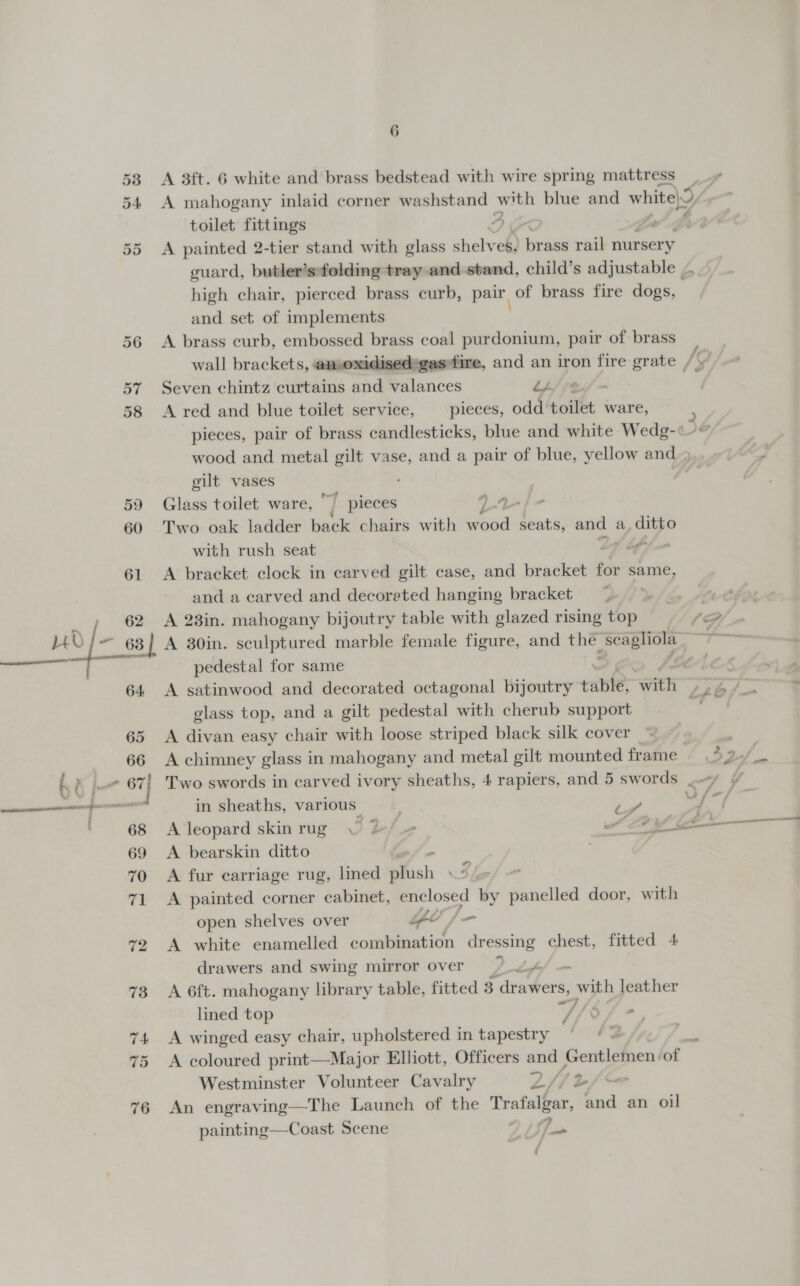 6
53 A 3ft. 6 white and brass bedstead with wire spring mattress
54 A mahogany inlaid corner washstand with blue and white
toilet fittings
55 A painted 2-tier stand with glass shelves, brass rail nursery
guard, butler's folding tray and stand, child's adjustable
high chair, pierced brass curb, pair of brass fire dogs,
and set of implements
56 A brass curb, embossed brass coal purdonium, pair of brass
wall brackets, an oxidised gas fire, and an iron fire grate
57 Seven chintz curtains and valances
58 A red and blue toilet service, pieces, odd toilet ware,
pieces, pair of brass candlesticks, blue and white Wedg-
wood and metal gilt vase, and a pair of blue, yellow and
gilt vases
59 Glass toilet ware, 7 pieces
60 Two oak ladder back chairs with wood seats, and a ditto
with rush seat
61 A bracket clock in carved gilt case, and bracket for same,
and a carved and decorated hanging bracket
62 A 23in. mahogany bijoutry table with glazed rising top
63 A 30in. sculptured marble female figure, and the scagliola
pedestal for same
64 A satinwood and decorated octagonal bijoutry table, with
glass top, and a gilt pedestal with cherub support
65 A divan easy chair with loose striped black silk cover
66 A chimney glass in mahogany and metal gilt mounted frame
67 Two swords in carved ivory sheaths, 4 rapiers, and 5 swords
in sheaths, various
68 A leopard skin rug
69 A bearskin ditto
70 A fur carriage rug, lined plush
71 A painted corner cabinet, enclosed by panelled door, with
open shelves over
72 A white enamelled combination dressing chest, fitted 4
drawers and swing mirror over
73 A 6ft. mahogany library table, fitted 3 drawers, with leather
lined top
74 A winged easy chair, upholstered in tapestry
75 A coloured print—Major Elliott, Officers and Gentlemen of
Westminster Volunteer Cavalry
76 An engraving—The Launch of the Trafalgar, and an oil
painting—Coast Scene